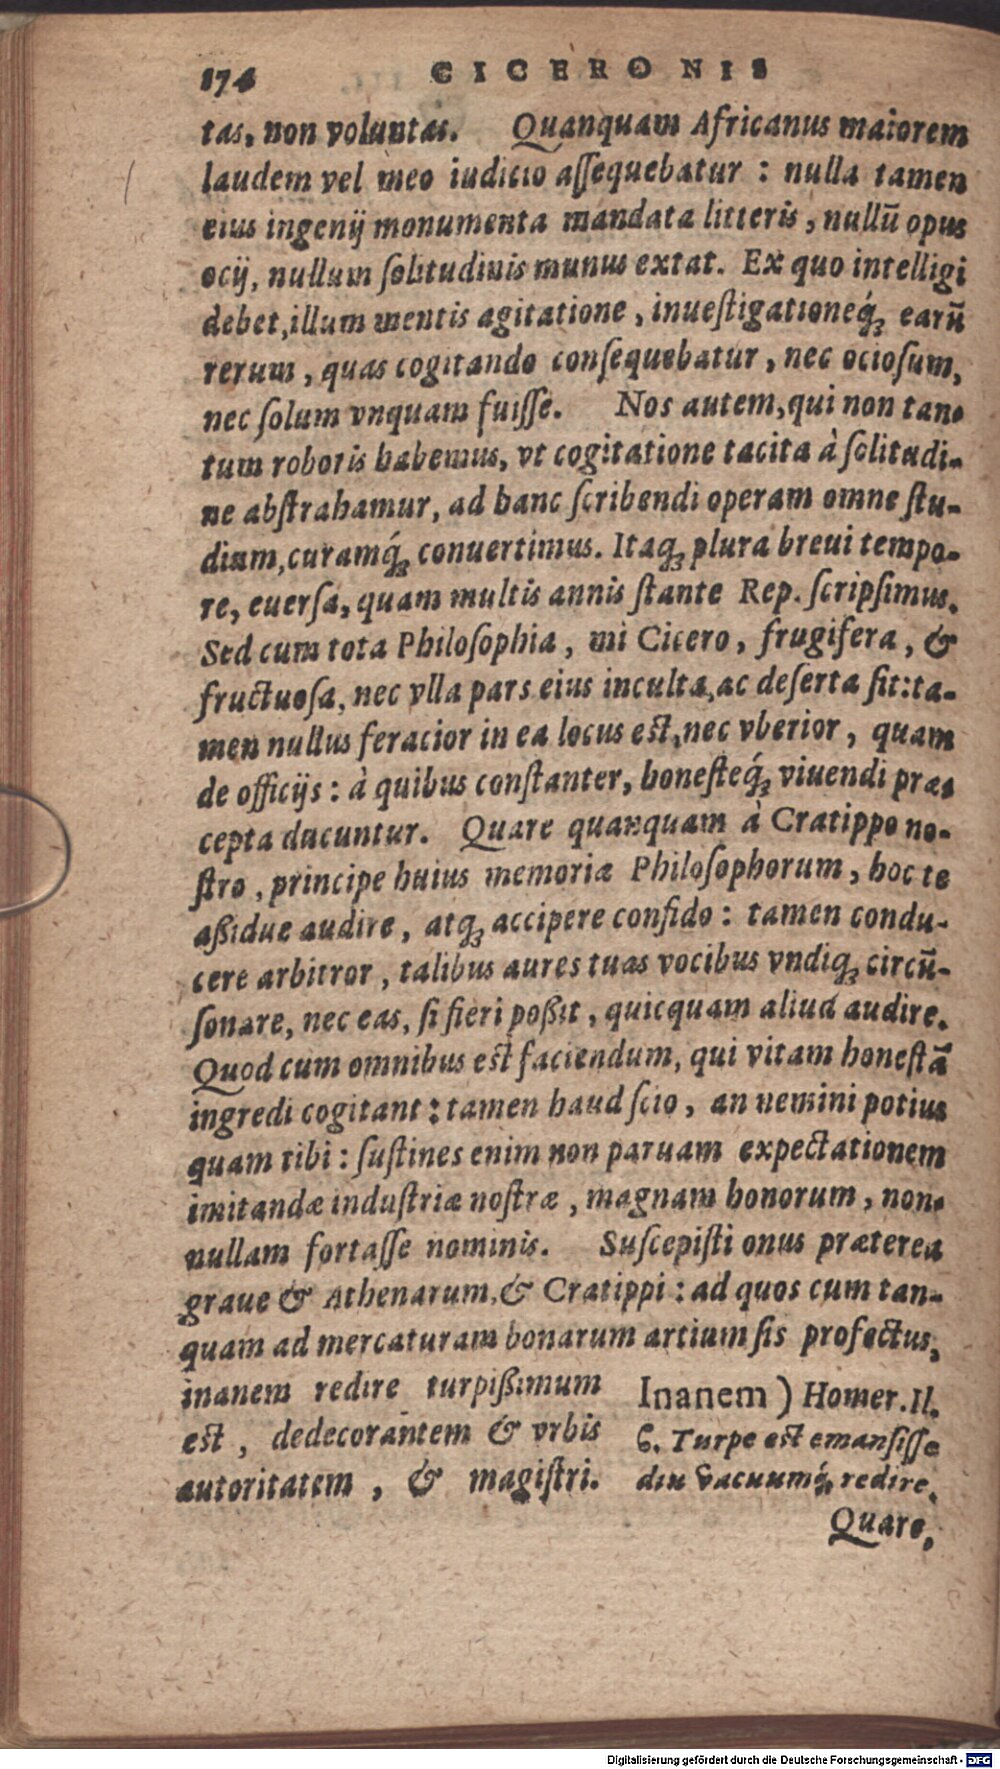 174 CICERONIS
tas, non voluntas. Quanquam Africanus maiorem
laudem vel meo iudicio aſſequebatur : nulla tamen
eius ingenij monumenta mandata litteris, nullũ opus
ocij, nullum ſolitudinis munus extat. Ex quo intelligi
debet, illum mentis agitatione, inueſtigationeq́ꝫ earũ
rerum, quas cogitando conſequebatur, nec ocioſum,
nec ſolum vnquam fuiſſe. Nos autem, qui non tan-
tum roboris habemus, vt cogitatione tacita à ſolitudi-
ne abſtrahamur, ad hanc ſcribendi operam omne ſtu-
dium, curamq́ꝫ conuertimus. Itaqꝫ plura breui tempo-
re, euerſa, quam multis annis ſtante Rep. ſcripſimus.
Sed cum tota Philoſophia, mi Cicero, frugifera, &
fructuoſa, nec vlla pars eius inculta, ac deſerta ſit: ta-
men nullus feracior in ea locus est, nec vberior, quam
de officijs : à quibus conſtanter, honeſteq́ꝫ viuendi præ-
cepta ducuntur. Quare quanquam à Cratippo no-
ſtro, principe huius memoriæ Philoſophorum, hoc te
aßidue audire, atqꝫ accipere confido : tamen condu-
cere arbitror, talibus aures tuas vocibus vndiqꝫ circũ-
ſonare, nec eas, ſi fieri poßit, quicquam aliud audire.
Quod cum omnibus est faciendum, qui vitam honeſtã
ingredi cogitant : tamen haud ſcio, an nemini potius
quam tibi : ſuſtines enim non paruam expectationem
imitandæ induſtriæ noſtræ, magnam honorum, non-
nullam fortaſſe nominis. Suſcepiſti onus præterea
graue & Athenarum, & Cratippi : ad quos cum tan-
quam ad mercaturam bonarum artium ſis profectus,
inanem redire turpißimum
est, dedecorantem & vrbis
autoritatem, & magiſtri.
Inanem ) Homer. Il.
6. Turpe est emanſiſſe
diu vacuumq́ꝫ redire.
Quare,
Digitalisierung gefördert durch die Deutsche Forschungsgemeinschaft - DFG